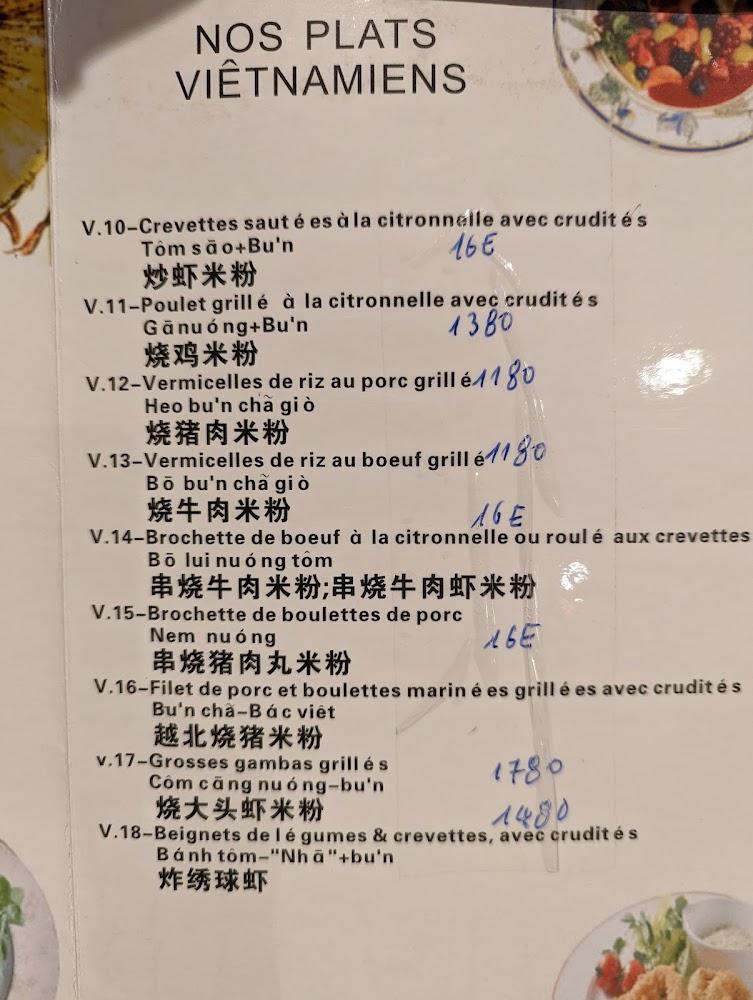 NOS PLATS
VIÊTNAMIENS
V.10-Crevettes saut é es à la citronnelle avec crudit é s
Tôm sāo+Bu'n 16E
炒虾米粉
V.11-Poulet grill é à la citronnelle avec crudit é s
Gānuóng+Bu'n 1380
烧鸡米粉
V.12-Vermicelles de riz au porc grill é 1180
Heo bu'n chã giò
烧猪肉米粉
V.13-Vermicelles de riz au boeuf grill é 1180
Bō bu'n chã giò
烧牛肉米粉 16E
V.14-Brochette de boeuf à la citronnelle ou roul é aux crevettes
Bō lui nuóng tôm
串烧牛肉米粉;串烧牛肉虾米粉
V.15-Brochette de boulettes de porc
Nem nuóng 16E
串烧猪肉丸米粉
V.16-Filet de porc et boulettes marin é es grill é es avec crudit é s
Bu'n chã-Bác viêt
越北烧猪米粉
v.17-Grosses gambas grill é s 1780
Côm cāng nuóng-bu'n
烧大头虾米粉 1480
V.18-Beignets de l é gumes & crevettes, avec crudit é s
Bánh tôm-"Nhã"+bu'n
炸绣球虾